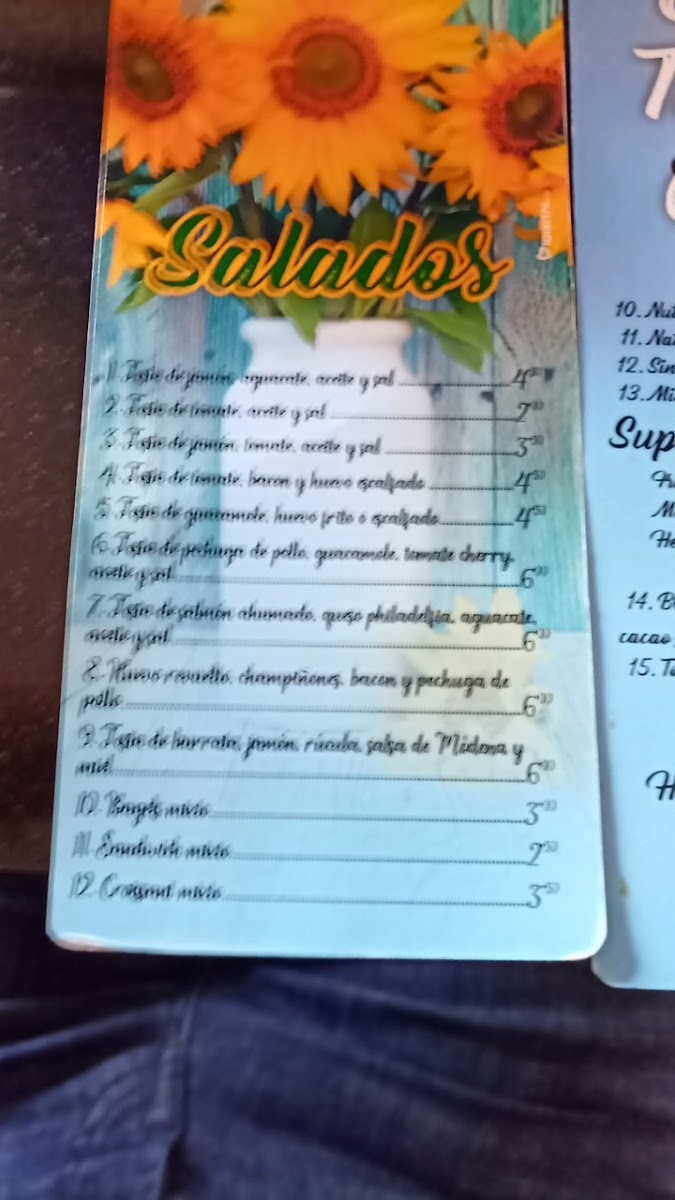 Salados
1. Tosta de jamón, aguacate, aceite y sal 4
2. Tosta de tomate, aceite y sal 2
3. Tosta de jamón, tomate, aceite y sal 3⁵⁰
4. Tosta de tomate, bacon y huevo escalfado 4⁵⁰
5. Tosta de guacamole, huevo frito o escalfado 4⁵⁰
6. Tosta de pechuga de pollo, guacamole, tomate cherry,
aceite y sal 6
7. Tosta de salmón ahumado, queso philadelfia, aguacate,
aceite y sal 6
8. Huevo revuelto, champiñones, bacon y pechuga de
pollo 6
9. Tosta de burrata, jamón, rúcula, salsa de Módena y
miel 6
10. mixto 3
11. Sandwich mixto 2⁵⁰
12. mixto 3⁵⁰
10.
11.
12.
13.
Sup
14.
cacao
15.